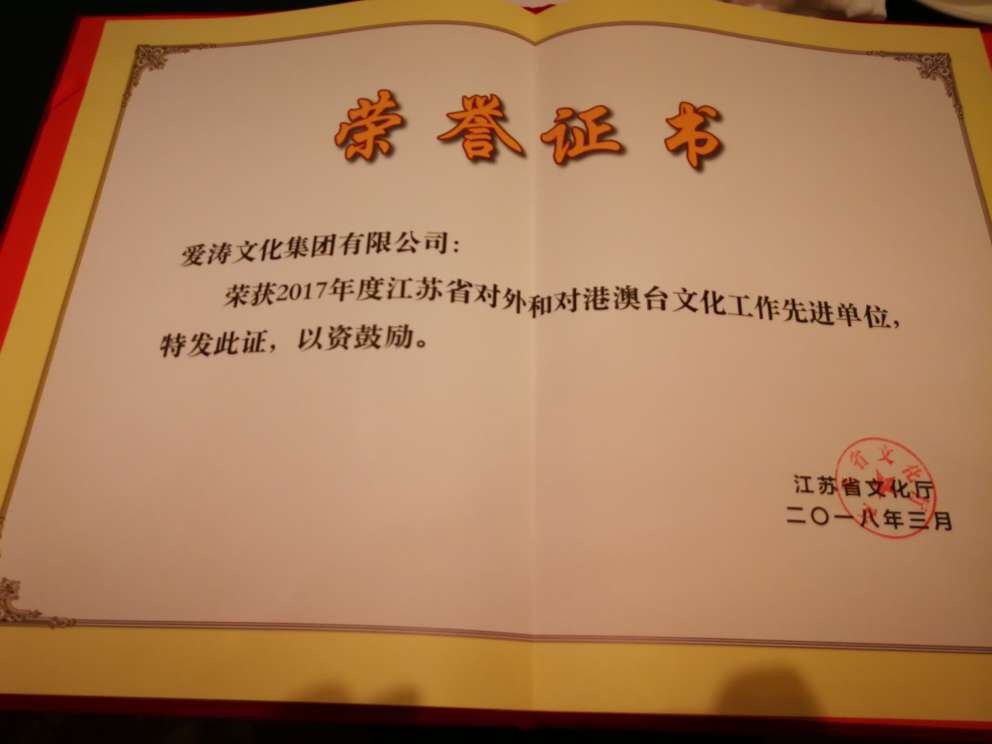 荣誉证书
爱涛文化集团有限公司：
荣获2017年度江苏省对外和对港澳台文化工作先进单位，
特发此证，以资鼓励。
江苏省文化厅
二〇一八年三月
省文化